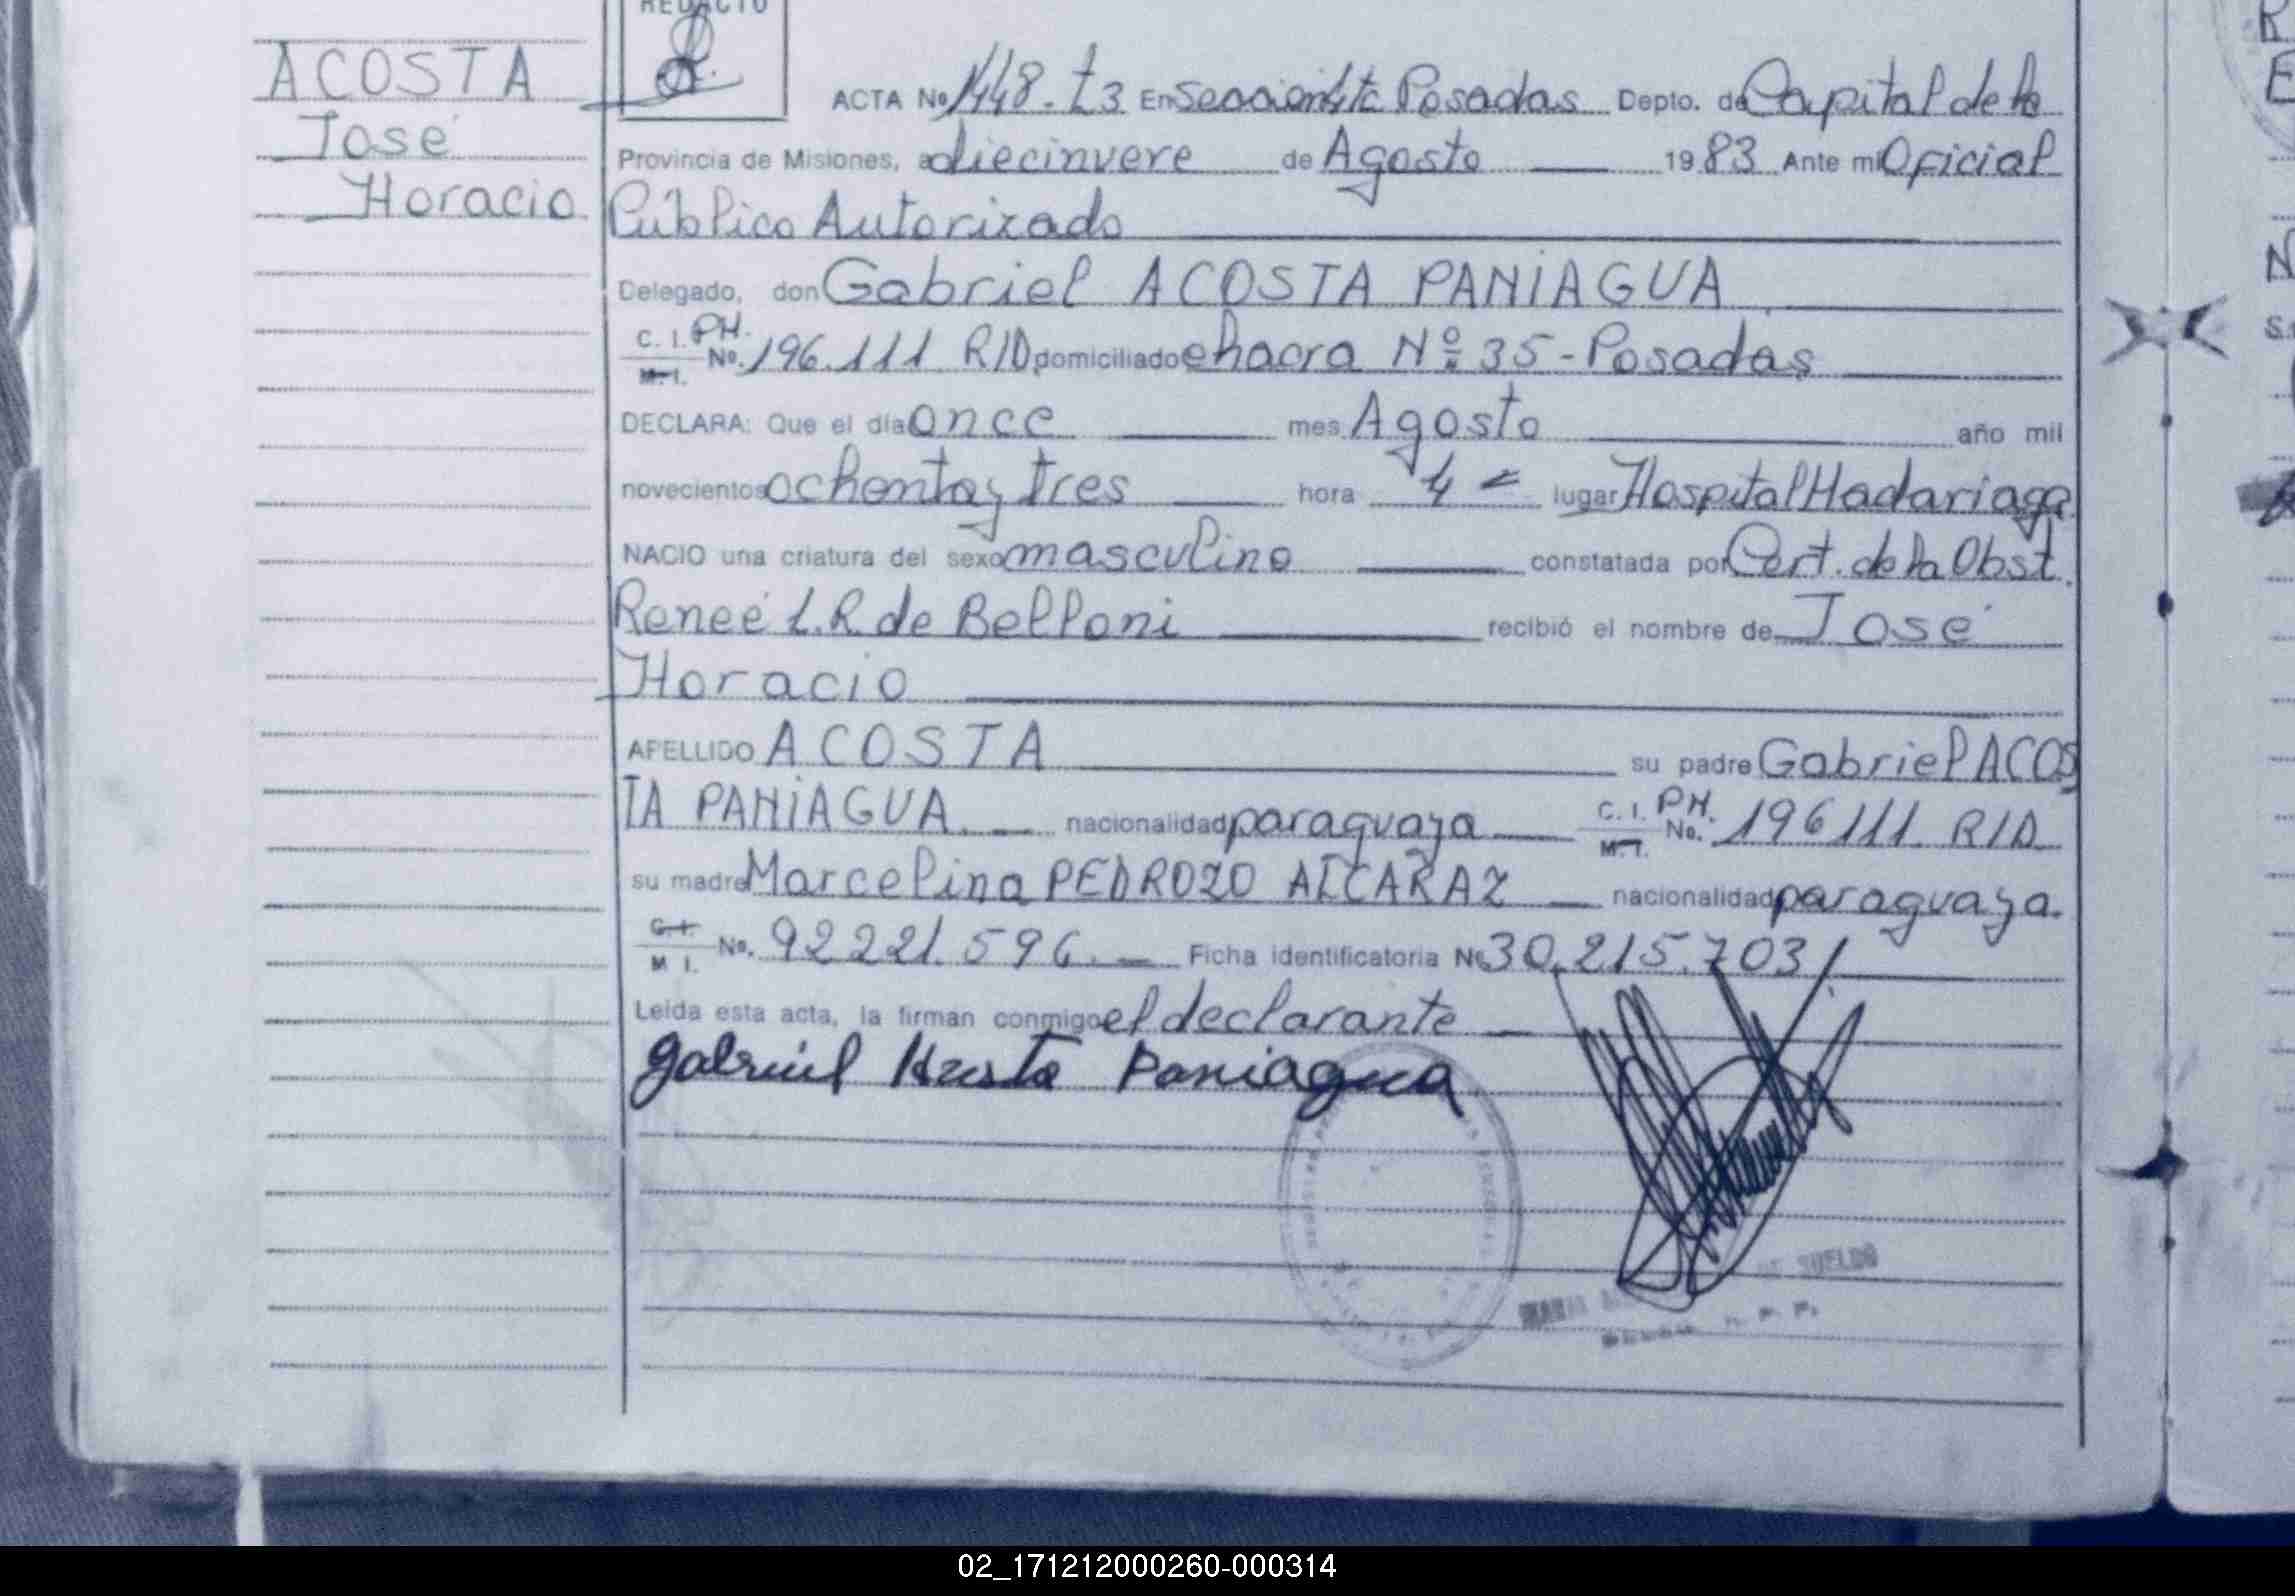 REDACTO
ACOSTA
José
Horacio
ACTA No 1448. t3 En Sección 4ta Posadas Depto. de Capital de la
Provincia de Misiones, a diecinueve de Agosto 1983 Ante mi Oficial
Público Autorizado
Delegado, don Gabriel ACOSTA PANIAGUA
C. I. PH.
M. I. No. 196.111 RID domiciliado chacra Nº 35 - Posadas
DECLARA: Que el día once mes Agosto año mil
novecientos ochenta y tres hora 4 lugar Hospital Madariaga
NACIO una criatura del sexo masculino constatada por Cert. de la Obst.
Reneé L. R. de Belloni recibió el nombre de José
Horacio
APELLIDO ACOSTA su padre Gabriel ACOS
TA PANIAGUA. nacionalidad paraguaya C. I. PH. M. I. No. 196111. RID
su madre Marcelina PEDROZO ALCARAZ nacionalidad paraguaya.
C. I. M I. No. 92221.596. Ficha identificatoria No 30.215.703
Leída esta acta, la firman conmigo el declarante
Gabriel Acosta Paniagua
DE SUELDO
02_171212000260-000314